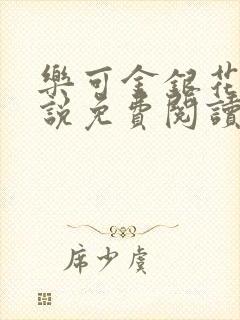 樂可金銀花
說免費閱讀
席少虞